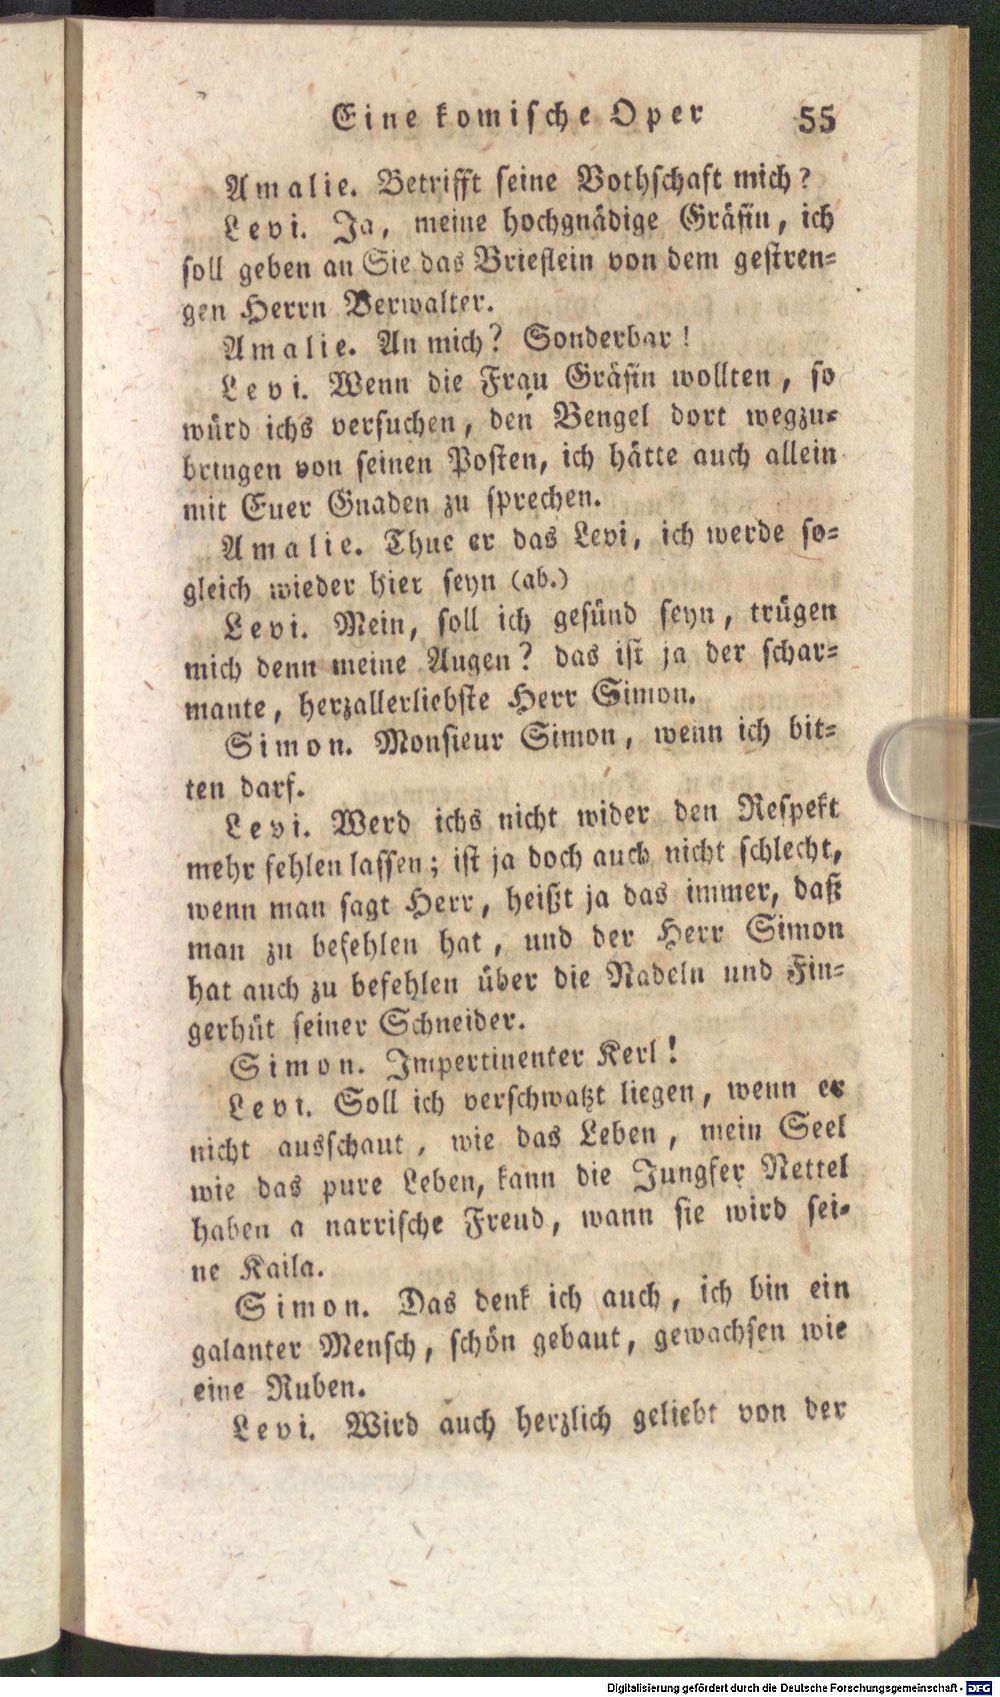 Eine komische Oper 55
Amalie. Betrifft seine Bothschaft mich?
Levi. Ja, meine hochgnädige Gräfin, ich
soll geben an Sie das Brieflein von dem gestren=
gen Herrn Verwalter.
Amalie. An mich? Sonderbar!
Levi. Wenn die Frau Gräfin wollten, so
würd ichs versuchen, den Bengel dort wegzu=
bringen von seinen Posten, ich hätte auch allein
mit Euer Gnaden zu sprechen.
Amalie. Thue er das Levi, ich werde so=
gleich wieder hier seyn (ab.)
Levi. Mein, soll ich gesünd seyn, trügen
mich denn meine Augen? das ist ja der schar=
mante, herzallerliebste Herr Simon.
Simon. Monsieur Simon, wenn ich bit=
ten darf.
Levi. Werd ichs nicht wider den Respekt
mehr fehlen lassen; ist ja doch auch nicht schlecht,
wenn man sagt Herr, heißt ja das immer, daß
man zu befehlen hat, und der Herr Simon
hat auch zu befehlen über die Nadeln und Fin=
gerhüt seiner Schneider.
Simon. Impertinenter Kerl!
Levi. Soll ich verschwatzt liegen, wenn er
nicht ausschaut, wie das Leben, mein Seel
wie das pure Leben, kann die Jungfer Nettel
haben a narrische Freud, wann sie wird sei=
ne Kaila.
Simon. Das denk ich auch, ich bin ein
galanter Mensch, schön gebaut, gewachsen wie
eine Ruben.
Levi. Wird auch herzlich geliebt von der
Digitalisierung gefördert durch die Deutsche Forschungsgemeinschaft - DFG